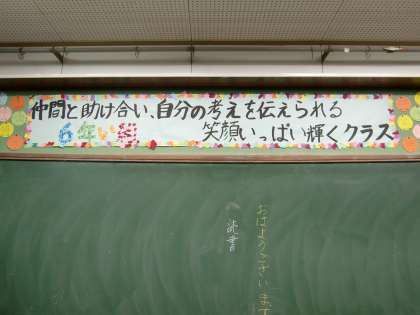 仲間と助け合い、自分の考えを伝えられる
笑顔いっぱい輝くクラス
6年い組
おはようございます
読書